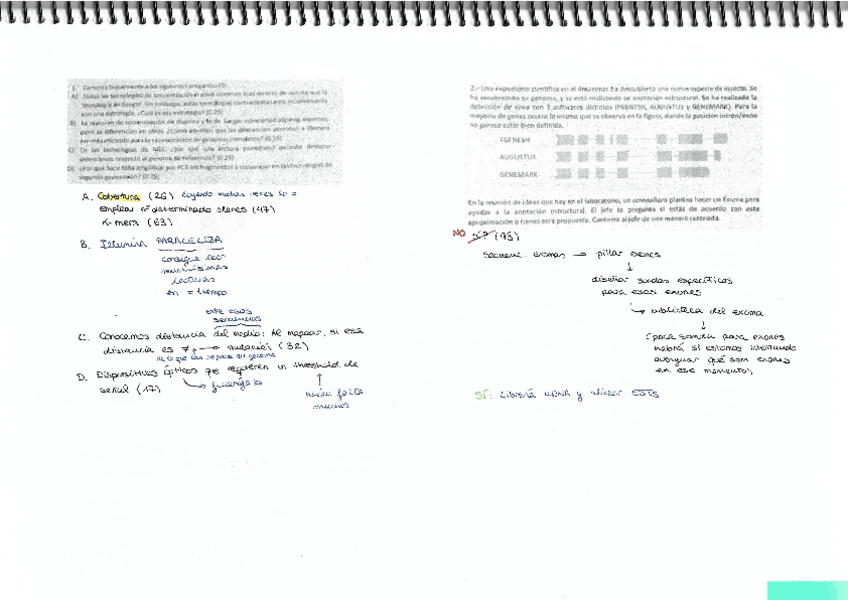 1. Contesta brevemente a las siguientes preguntas (1).
A) Todas las tecnologías de secuenciación masiva tienen más errores de lectura que la
tecnología de Sanger. Sin embargo, estas tecnologías contrarrestan este inconveniente
con una estrategia. ¿Cuál es esa estrategia? (0.25)
B) La reacción de secuenciación de Illumina y la de Sanger comparten algunos aspectos,
pero se diferencian en otros. ¿Cómo
ser más eficiente para la secuenciación de genomas completos? (0.25)
C) En las tecnologías de NGS, ¿por qué una lectura paired-end permite detectar
respecto al genoma de referencia? (0.25)
D) ¿Por qué hace falta amplificar por PCR los fragmentos a secuenciar en las tecnologías de
segunda generación? (0.25)
A. Cobertura (26) leyendo muchas veces lo =
emplear nº determinado clones (47)
K-mera (63)
B. Illumina PARALELIZA
consigue leer
muchísimas
lecturas
en = tiempo
entre esas
secuencias
C. Conocemos distancia del medio: Al mapear, si esa
distancia es ≠, → mutación (32)
D. Dispositivos ópticos que requieren un threshold de
señal (17)
hacen falta
muchos
2.- Una expedición científica en el Amazonas ha descubierto una nueva especie de insecto. Se
ha secuenciado su genoma, y se está realizando su anotación estructural. Se ha realizado la
detección de novo con 3 softwares distintos (FGENESH, AUGUSTUS y GENEMARK). Para la
mayoría de genes ocurre lo mismo que se observa en la figura, donde la posición intrón/exón
no parece estar bien definida.
FGENESH
AUGUSTUS
GENEMARK
En la reunión de ideas que hay en el laboratorio, un compañero plantea hacer un Exoma para
ayudar a la anotación estructural. El jefe te pregunta si estás de acuerdo con esta
aproximación o tienes otra propuesta. Contesta al jefe de una manera razonada.
NO sí? (93)
Secuenc. exomas → pillar genes
diseñar sondas específicas
para esos exones
→ biblioteca del exoma
¿para sondas para exones
habrá si estamos intentando
averiguar qué son exones
en ese momento?
SÍ: Librería cDNA y alinear ESTs